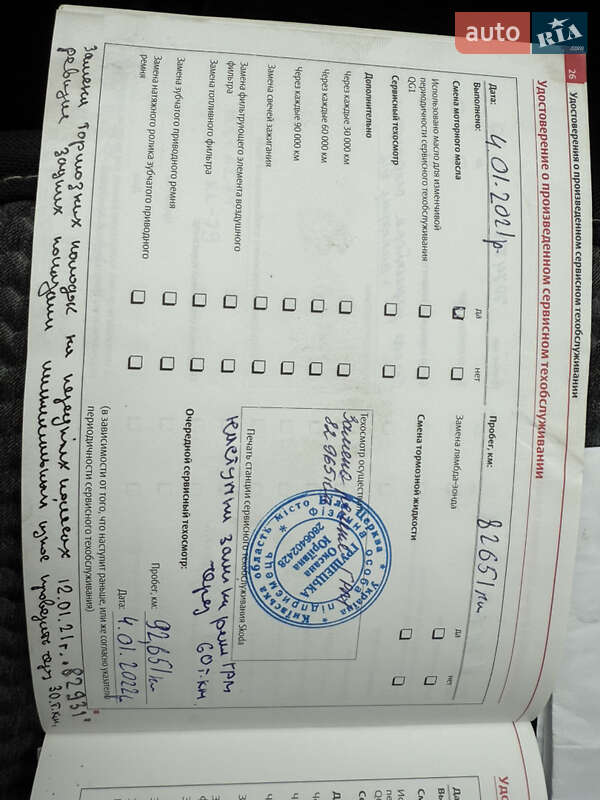 auto RIA.com
26
Удостоверения о произведенном сервисном техобслуживании
Удостоверение о произведенном сервисном техобслуживании
Дата: 4.01.2021р.
Пробег, км: 82651км
Выполнено: да нет
да нет
Смена моторного масла
Замена лямбда-зонда
Использовано масло для изменчивой
периодичности сервисного техобслуживания
QG1
Смена тормозной жидкости
Сервисный техосмотр
Дополнительно
Через каждые 30 000 км
Через каждые 60 000 км
Через каждые 90 000 км
Замена свечей зажигания
Замена фильтрующего элемента воздушного
фильтра
Замена топливного фильтра
Замена зубчатого приводного ремня
Замена натяжного ролика зубчатого приводного
ремня
Техосмотр осущест
Замена
82965
Україна * Київська область місто Біла Церква *
фізична особа підприємець
ГРУШЕЦЬКА
Оксана
Юріївна
2806402428
Печать станции сервисного техобслуживания Skoda
наступни заміна ремня ГРМ
через 60 т.км.
Очередной сервисный техосмотр:
Пробег, км: 92651км
Дата: 4.01.2022р
(в зависимости от того, что наступит раньше, или же согласно указателю
периодичности сервисного техобслуживания)
Заміна тормозних колодок на передніх колесах 12.01.21г.
задних колодок
30.т.км.